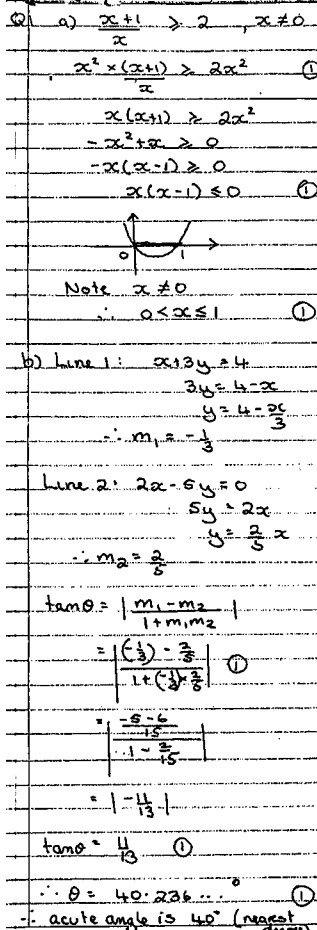 Q1 a) x+1/x ≥ 2 , x≠0
x² × (x+1)/x ≥ 2x² ①
x(x+1) ≥ 2x²
-x²+x ≥ 0
-x(x-1) ≥ 0
x(x-1) ≤ 0 ①
0 1
Note x ≠ 0
∴ 0 < x ≤ 1 ①
b) Line 1: x+3y = 4
3y = 4-x
y = 4-x/3
∴ m₁ = -1/3
Line 2: 2x-5y = 0
5y = 2x
y = 2/5 x
∴ m₂ = 2/5
tanθ = | m₁-m₂ / 1+m₁m₂ |
= | (-1/3) - 2/5 / 1+(-1/3)×2/5 | ①
= | -5-6/15 / 1 - 2/15 |
= | -11/13 |
tanθ = 11/13 ①
∴ θ = 40.236...° ①
∴ acute angle is 40° (nearest